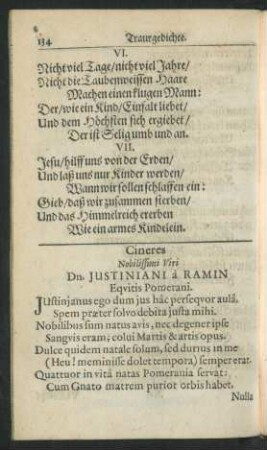 134 Traurgedichte.
VI.
Nicht viel Tage/nicht viel Jahre/
Nicht die Taubenweissen Haare
Machen einen klugen Mann:
Der/wie ein Kind/Einfalt liebet/
Und dem Höchsten sich ergiebet/
Der ist Selig umb und an.
VII.
Jesu/hilff uns von der Erden/
Und laß uns nur Kinder werden/
Wann wir sollen schlaffen ein:
Gieb/daß wir zusammen sterben/
Und das Himmelreich ererben
Wie ein armes Kindelein.
Cineres
Nobilissimi Viri
Dn. JUSTINIANI á RAMIN
Eqvitis Pomerani.
JUstinjanus ego dum jus hâc perseqvor aulâ,
Spem præter solvo debita justa mihi.
Nobilibus sum natus avis, nec degener ipse
Sangvis eram, colui Martis & artis opus.
Dulce quidem natale solum, sed durius in me
(Heu! meminisse dolet tempora) semper erat.
Quattuor in vitâ natas Pomerania servat:
Cum Gnato matrem purior orbis habet.
Nulla